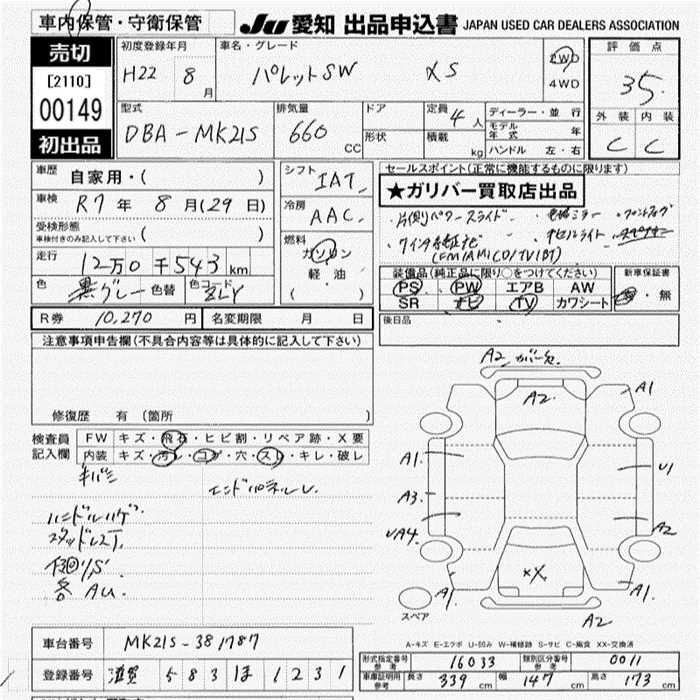 車内保管・守衛保管 JU 愛知 出品申込書 JAPAN USED CAR DEALERS ASSOCIATION
売切
[2110]
00149
初出品
初度登録年月 車名・グレード 2WD 4WD 評価点
H22 8月 パレットSW XS 3.5
外装 内装
C C
型式 排気量 ドア 定員 4人 ディーラー・並行
DBA-MK21S 660 CC 形状 積載 kg モデル年式 年
ハンドル 左・右
車歴 自家用・( )
シフト IAT
セールスポイント(正常に機能するものに限り)
★ガリバー買取店出品
車検 R7年 8月(29日)
冷房 AAC
・片側パワースライド ・電格ミラー ・フロントフォグ
受検形態 車検付きのみ記入して下さい ( )
・オートライト
(FM/AM/CD/TV/BT)
走行 12万0千543km
燃料 ガソリン 軽油 ( )
装備品(純正品に限り○をつけてください) 新車保証書
PS PW エアB AW
SR ナビ TV カワシート 有・無
色 グレー 色替 色コード ZLY
R券 10,270円 名変期限 月 日
後日品
注意事項申告欄(不具合内容等は具体的に記入して下さい)
修復歴 有 (箇所 )
検査員記入欄 FW キズ・飛石・ヒビ割・リペア跡・X要
内装 キズ・汚レ・コゲ・穴・スレ・キレ・破レ
キバミ
エンドパネルU.
ハンドルハゲ
スタッドレス
各AU.
A2 ガバ欠
A2
A1
A1
U1
A3
A2
UA4
XX
A1
A1
A2
スペア
A-キズ E-エクボ U-凹み W-補修跡 S-サビ C-腐食 XX-交換済
車台番号 MK21S-381787
登録番号 滋賀 583 ほ 1231
形式指定番号 参考 16033 類別区分番号 参考 0011
車庫証明用 参考 長さ 339cm 幅 147cm 高さ 173cm